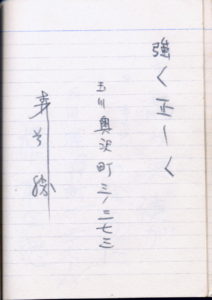 強く正しく
玉川奥沢町三ノ二七三